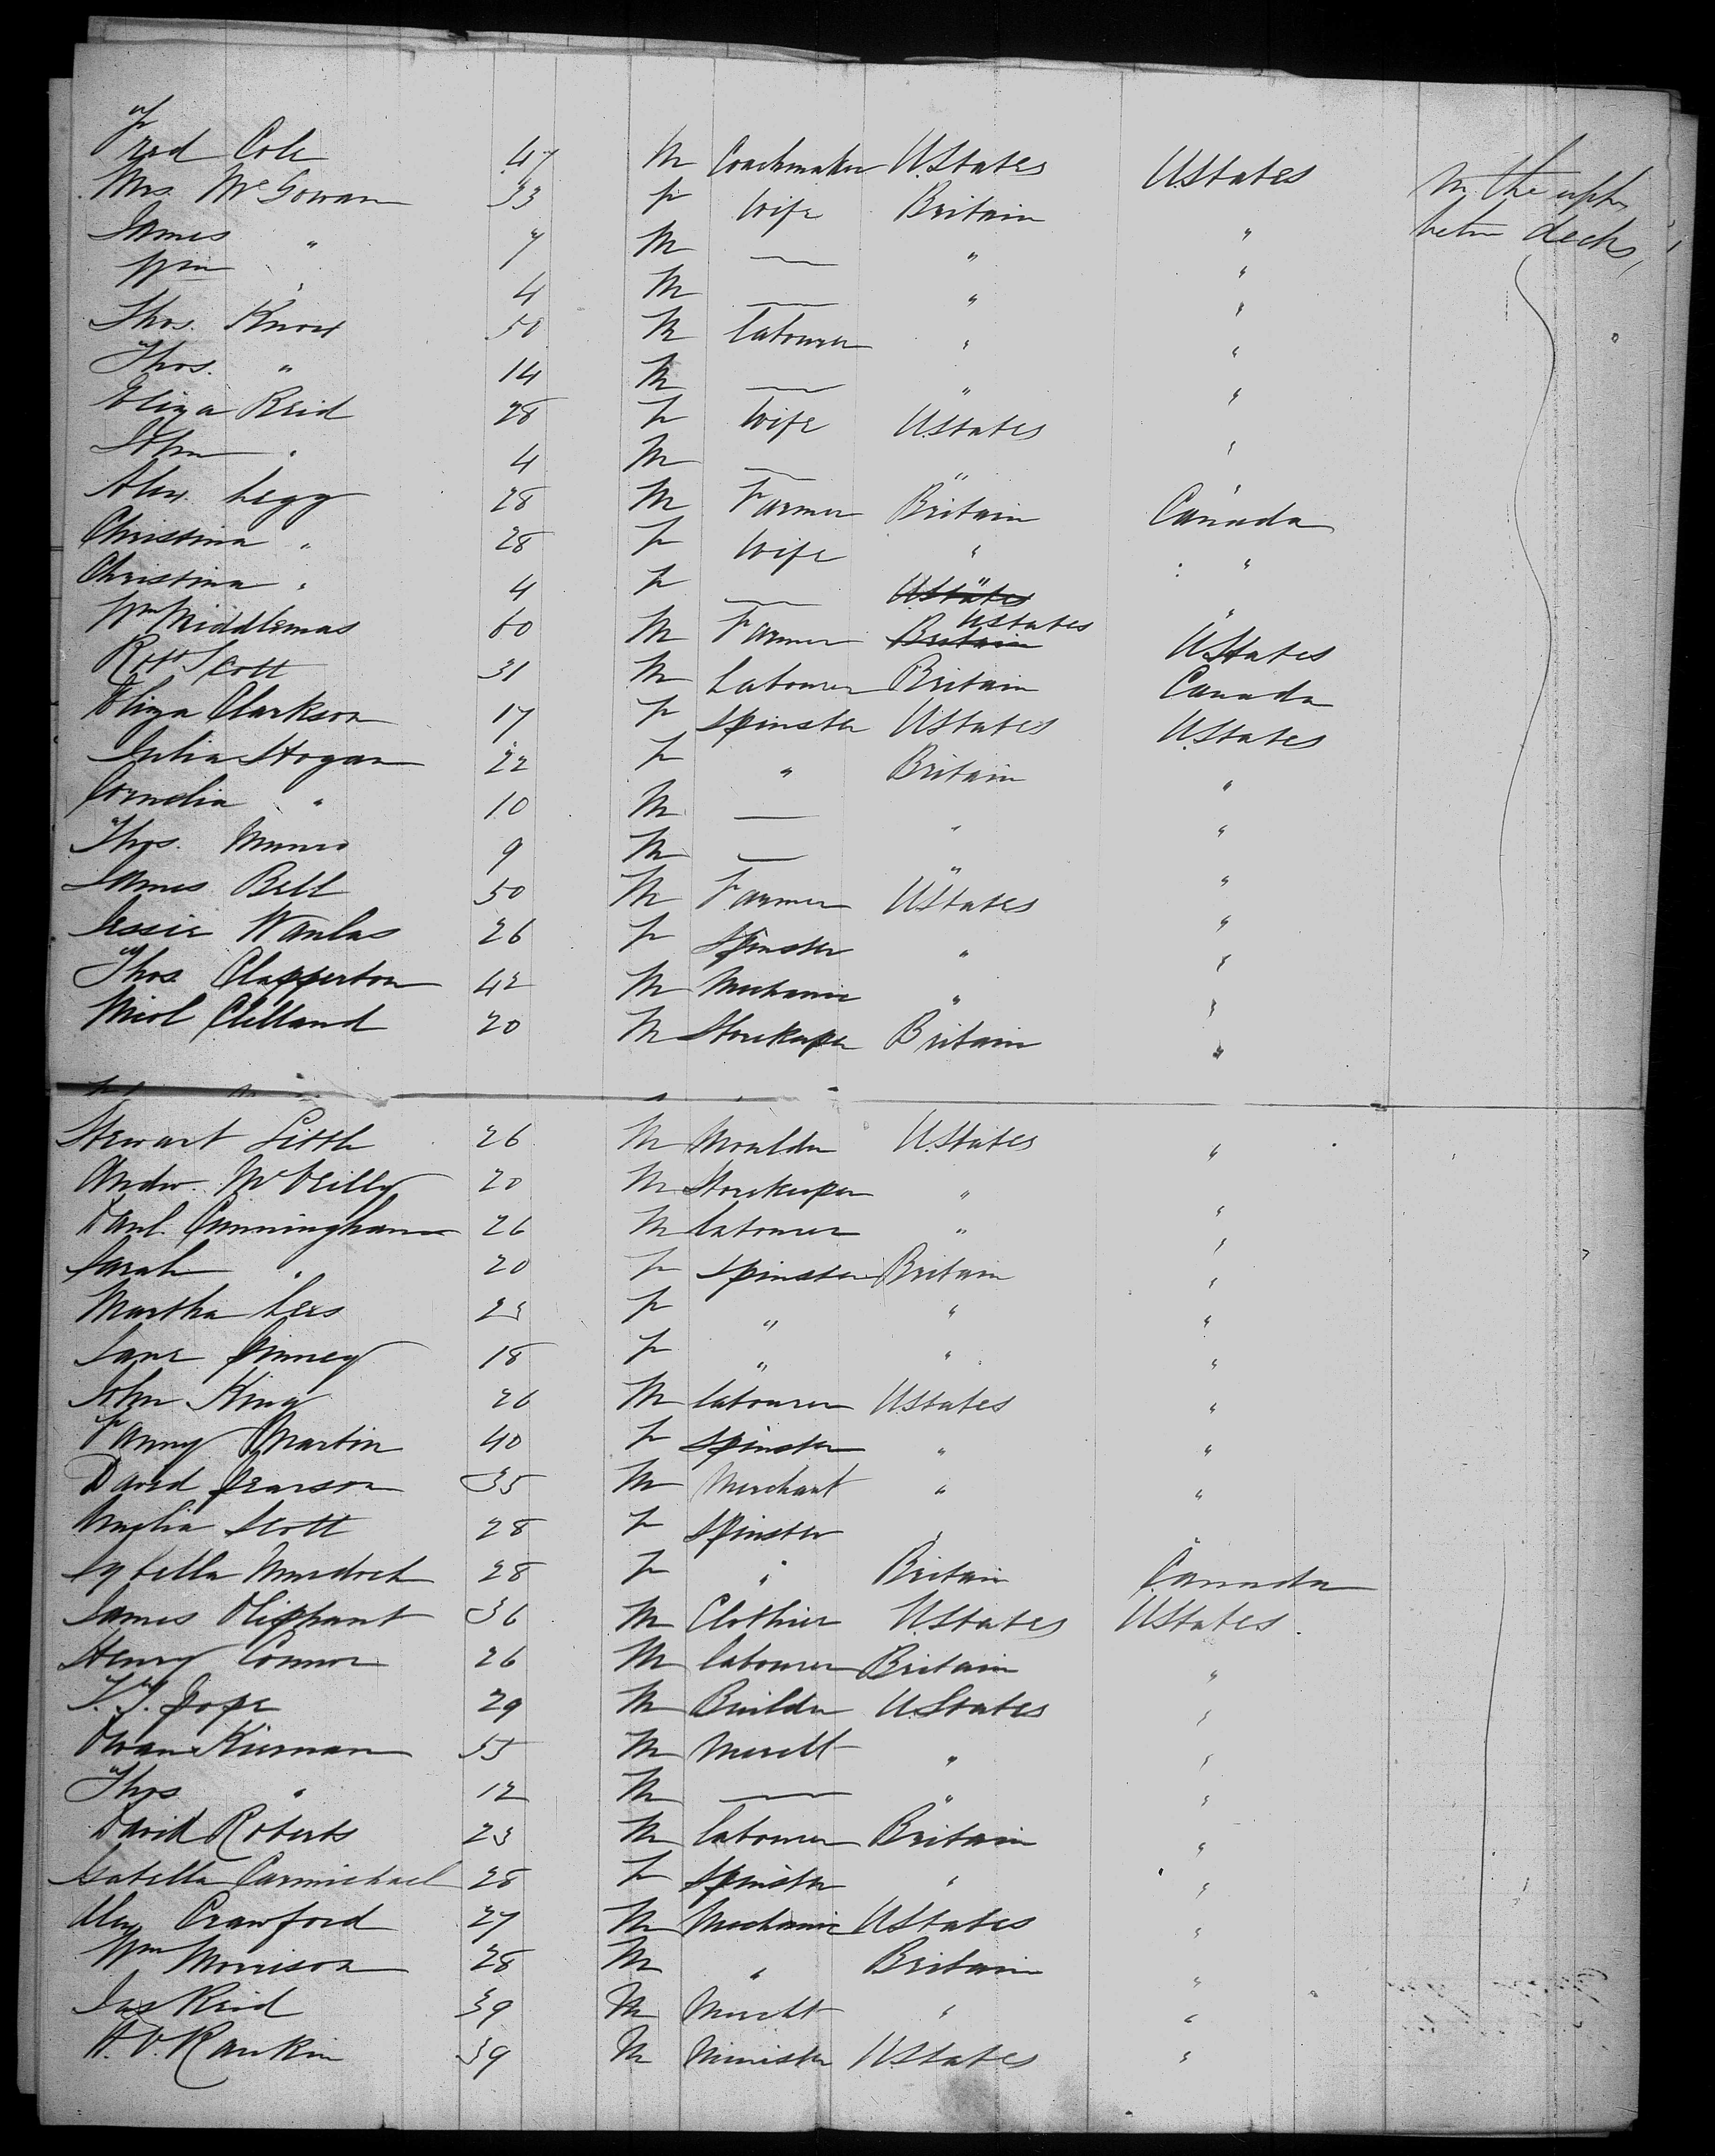 Fred Cole 47 M Coachmaker U.States U.States In the upper
Mrs. McGowan 33 F Wife Britain " betn decks,
James " 7 M — " "
Wm " 4 M — " "
Thos. Knox 50 M Labourer " "
Thos. " 14 M — " "
Eliza Reid 28 F Wife U.States "
John " 4 M — " "
Alex. Legg 28 M Farmer Britain Canada
Christina " 28 F Wife " "
Christina " 4 F — UStates "
Wm Middlemas 60 M Farmer Britain UStates UStates
Robt Scott 31 M Labourer Britain Canada
Eliza Clarkson 17 F Spinster UStates UStates
Julia Hogan 22 F " Britain "
Cornelia " 10 M — " "
Thos. Munro 9 M — " "
James Bell 50 M Farmer UStates "
Jessie Wanlas 26 F Spinster " "
Thos Clapperton 42 M Mechanic " "
Nicol Clelland 20 M Storekeeper Britain "
Stewart Little 26 M Moulder U.States "
Andw. McReilly 20 M Storekeeper " "
Danl. Cunningham 26 M Labourer " "
Sarah " 20 F Spinster Britain "
Martha Lees 23 F " " "
Jane Pinney 18 F " " "
John King 26 M Labourer UStates "
Fanny Martin 40 F Spinster " "
David Pearson 35 M Merchant " "
Scott 28 F Spinster " "
Murdoch 28 F " Britain Canada
James Oliphant 36 M Clothier UStates UStates.
Henry Connor 26 M Labourer Britain "
Pope 29 M Builder U.States "
Owan Kiernan 55 M Mercht " "
Thos " 12 M — " "
David Roberts 23 M Labourer Britain "
Isabella Carmichael 28 F Spinster " "
Crawford 27 M Mechanic UStates "
Wm Morrison 28 M " Britain "
Jas Reid 39 M Mercht " "
H.V. Rankin 39 M Minister UStates "